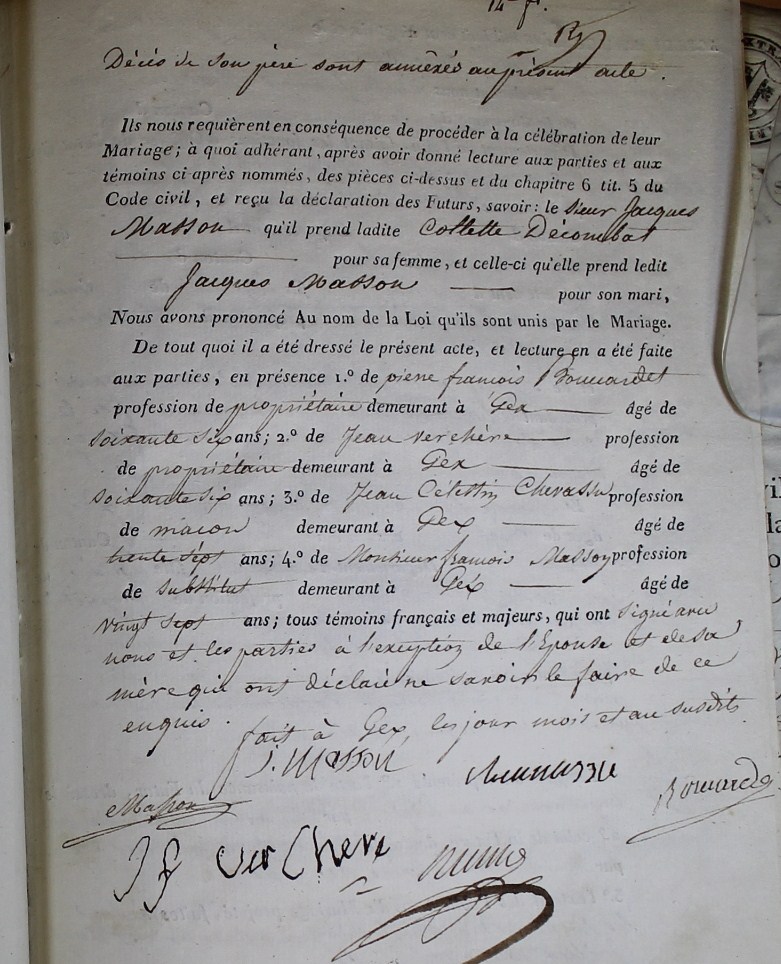 Décès de son père sont annexés au présent acte.
Ils nous requièrent en conséquence de procéder à la célébration de leur
Mariage; à quoi adhérant, après avoir donné lecture aux parties et aux
témoins ci après nommés, des pièces ci-dessus et du chapitre 6 tit. 5 du
Code civil, et reçu la déclaration des Futurs, savoir: le Sieur Jacques
Masson qu'il prend ladite Collette Décombat
pour sa femme, et celle-ci qu'elle prend ledit
Jacques Masson pour son mari,
Nous avons prononcé Au nom de la Loi qu'ils sont unis par le Mariage.
De tout quoi il a été dressé le présent acte, et lecture en a été faite
aux parties, en présence 1.º de pierre françois
profession de propriétaire demeurant à Gex âgé de
soixante six ans; 2.º de Jean verchère profession
de propriétaire demeurant à Gex âgé de
soixante six ans; 3.º de Jean Célestin Chevassu profession
de macon demeurant à Gex âgé de
trente sept ans; 4.º de Monsieur françois Masson profession
de substitut demeurant à Gex âgé de
vingt sept ans; tous témoins français et majeurs, qui ont signé avec
nous et les parties à l'exception de l'Epouse et de sa
mère qui ont déclaré ne savoir le faire de ce
enquis. fait à Gex, les jour mois et an susdits
J. Masson
Masson
J f verChere